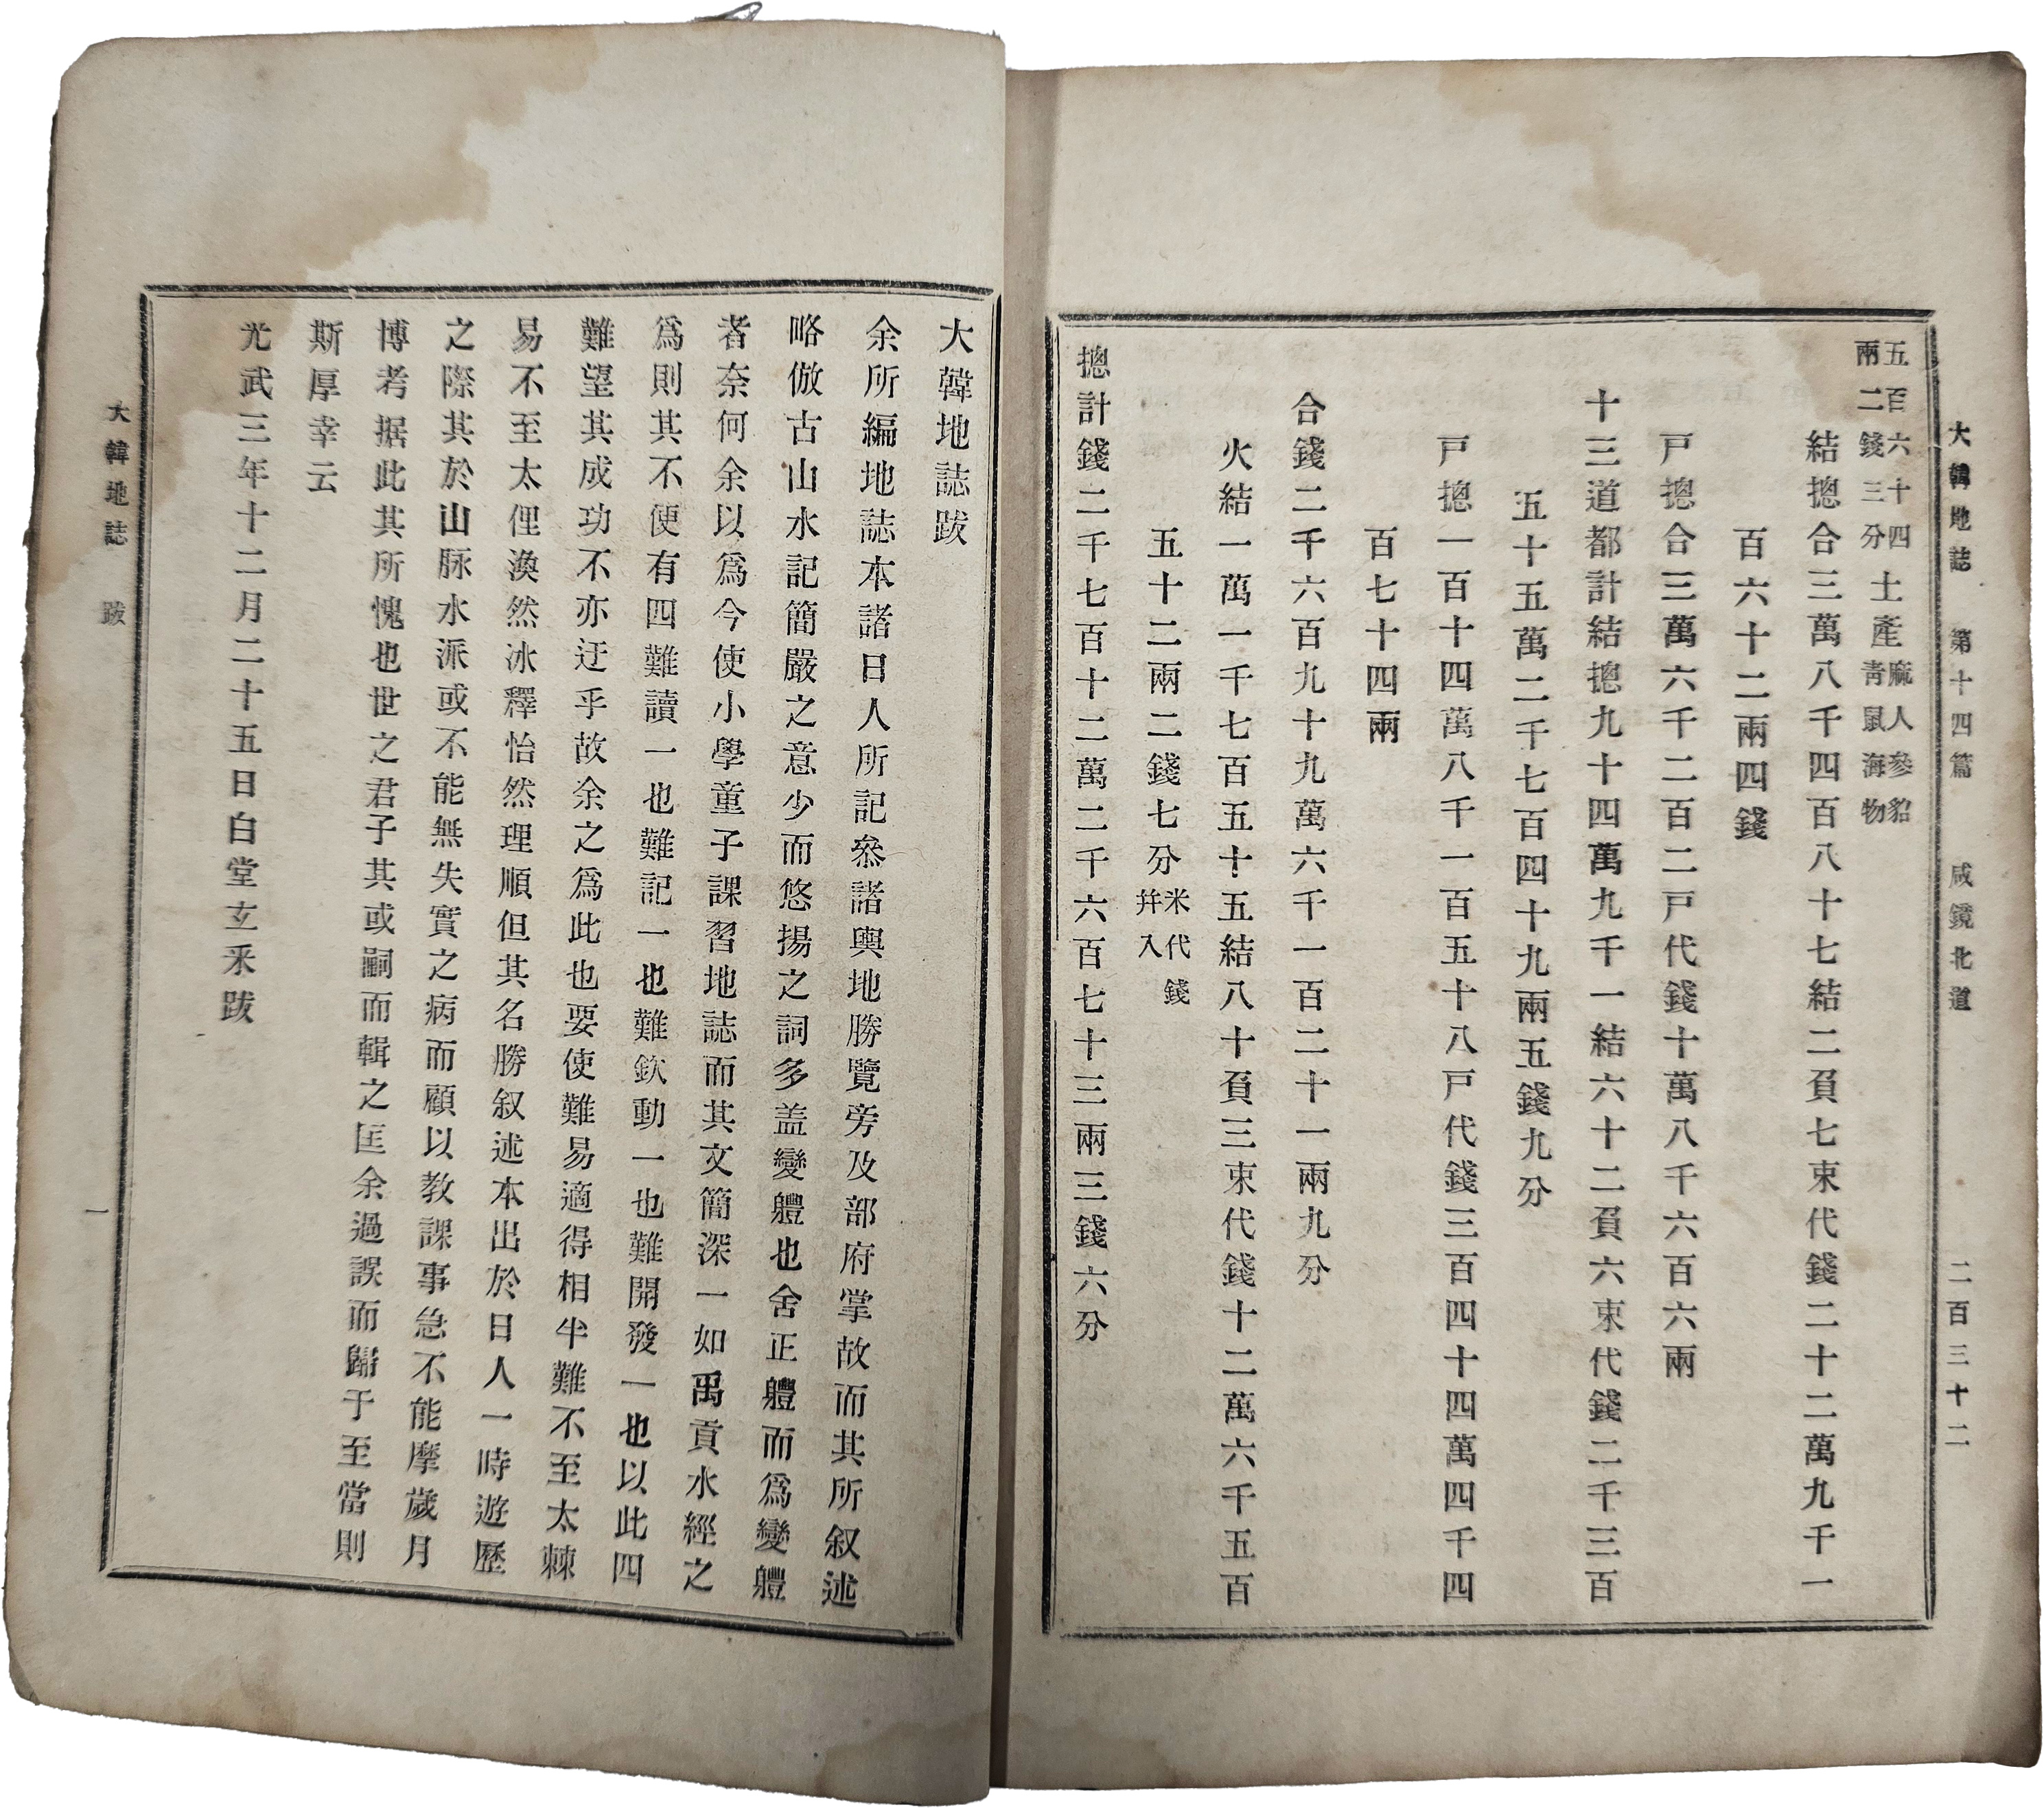 大韓地誌 第十四篇 咸鏡北道 二百三十二
五百六十四
兩二錢三分
土產
麻人參貂
靑鼠海物
結摠合三萬八千四百八十七結二負七束代錢二十二萬九千一
百六十二兩四錢
戶摠合三萬六千二百二戶代錢十萬八千六百六兩
十三道都計結摠九十四萬九千一結六十二負六束代錢二千三百
五十五萬二千七百四十九兩五錢九分
戶摠一百十四萬八千一百五十八戶代錢三百四十四萬四千四
百七十四兩
合錢二千六百九十九萬六千一百二十一兩九分
火結一萬一千七百五十五結八十負三束代錢十二萬六千五百
五十二兩二錢七分
米代錢
幷入
摠計錢二千七百十二萬二千六百七十三兩三錢六分
大韓地誌跋
余所編地誌本諸日人所記叅諸輿地勝覽旁及部府掌故而其所叙述
略倣古山水記簡嚴之意少而悠揚之詞多盖變軆也舍正軆而爲變軆
者奈何余以爲今使小學童子課習地誌而其文簡深一如禹貢水經之
爲則其不便有四難讀一也難記一也難欽動一也難開發一也以此四
難望其成功不亦迂乎故余之爲此也要使難易適得相半難不至太棘
易不至太俚渙然冰釋怡然理順但其名勝叙述本出於日人一時遊歷
之際其於山脉水派或不能無失實之病而顧以教課事急不能摩歲月
博考据此其所愧也世之君子其或嗣而輯之匡余過誤而歸于至當則
斯厚幸云
光武三年十二月二十五日白堂玄采跋
大韓地誌 跋 一